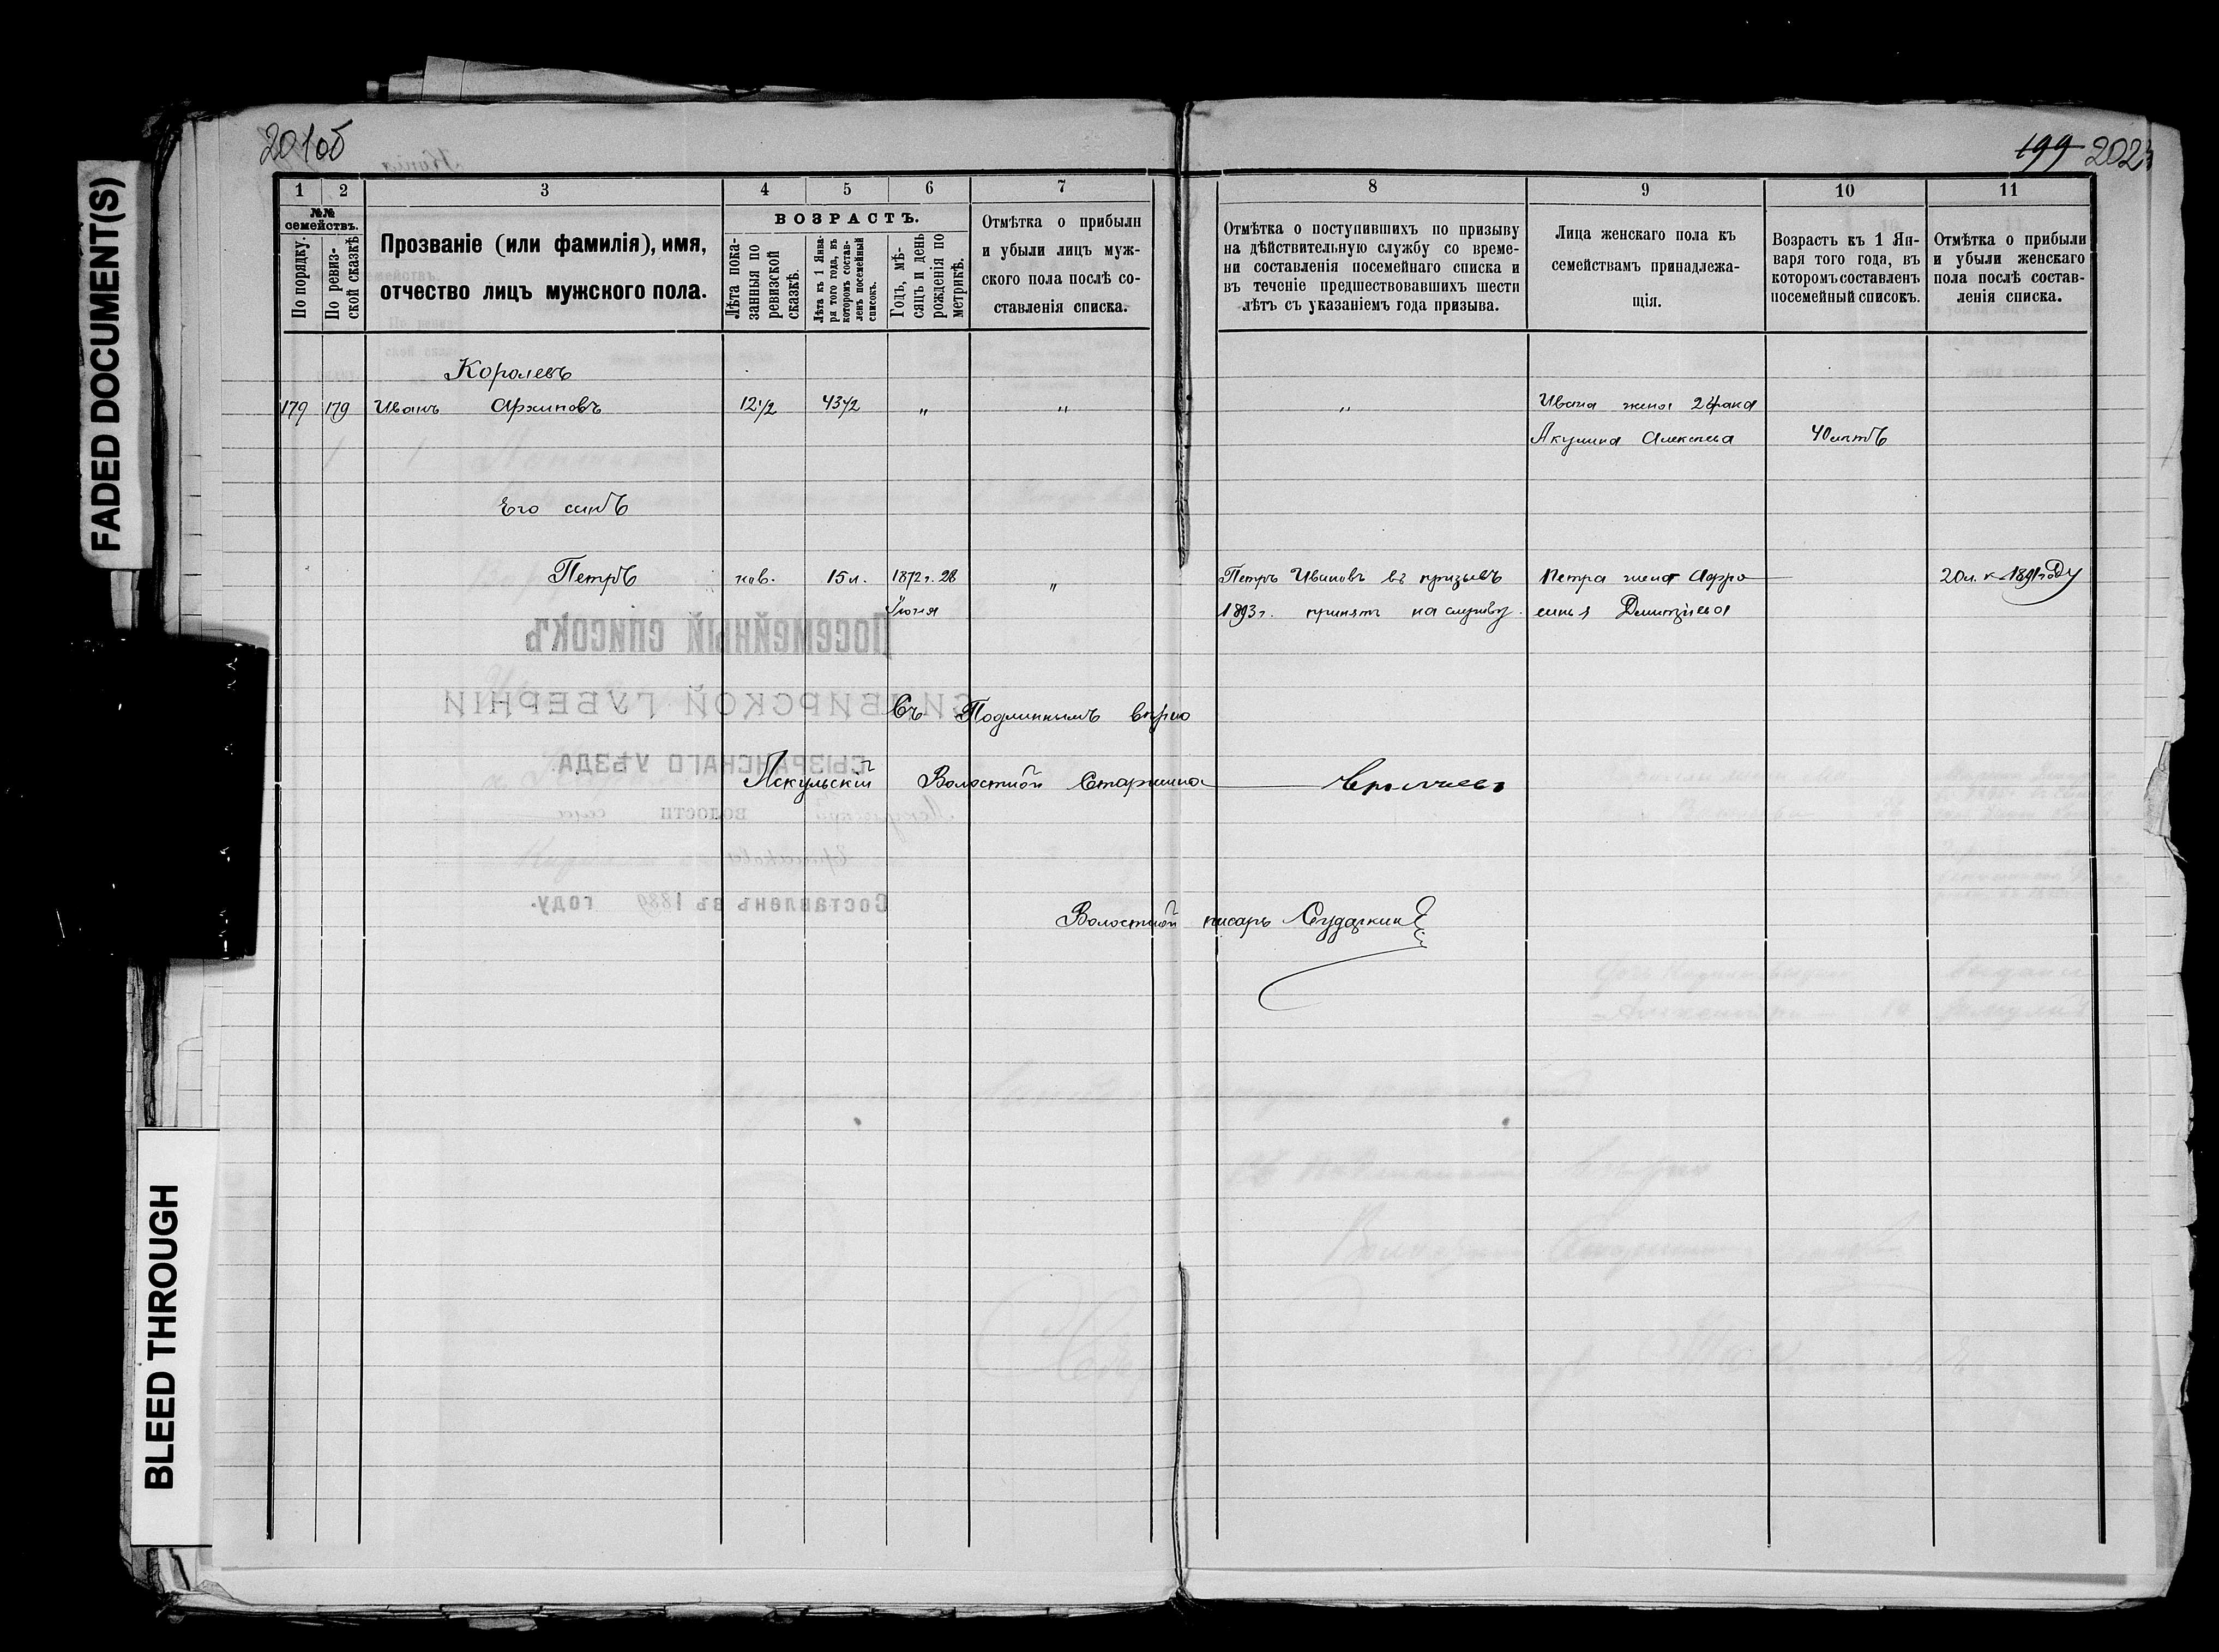 201об
199 202
FADED DOCUMENT(S)
BLEED THROUGH
1 2 3 4 5 6 7 8 9 10 11
№№ семействъ.
По порядку.
По ревизской сказкѣ
Прозваніе (или фамилія), имя,
отчество лицъ мужского пола.
ВОЗРАСТЪ.
Лѣта пока-
занныя по
ревизской
сказкѣ.
Лѣта къ 1 Янва-
ря того года, въ
которомъ состав-
ленъ посемейный
списокъ.
Годъ, мѣ-
сяцъ и день
рожденія по
метрикѣ.
Отмѣтка о прибыли
и убыли лицъ муж-
ского пола послѣ со-
ставленія списка.
Отмѣтка о поступившихъ по призыву
на дѣйствительную службу со време-
ни составленія посемейнаго списка и
въ теченіе предшествовавшихъ шести
лѣтъ съ указаніемъ года призыва.
Лица женскаго пола къ
семействамъ принадлежа-
щія.
Возрасть къ 1 Ян-
варя того года, въ
которомъ составленъ
посемейный списокъ.
Отмѣтка о прибыли
и убыли женскаго
пола послѣ состав-
ленія списка.
Королевъ
179 179 Иванъ Архиповъ 12 1/2 43 1/2 „ „ „ Ивана жена 2 брака
Акулина Алексѣева 40 лѣтъ
Его сынъ
Петръ нов. 15 л. 1872 г. 28 „ Петръ Ивановъ въ призывъ Петра жена Афро- 20 л. к 1891 году
Іюня 1893 г. принятъ на службу. синья Дмитріева
Съ Подлиннымъ вѣрно
Аскульскій Волостной Старшина
Волостной писарь Сударкин
Посемейный списокъ
СИМБИРСКОЙ ГУБЕРНІИ
СЫЗРАНСКАГО УѢЗДА.
волости
Составленъ въ 1889 году.